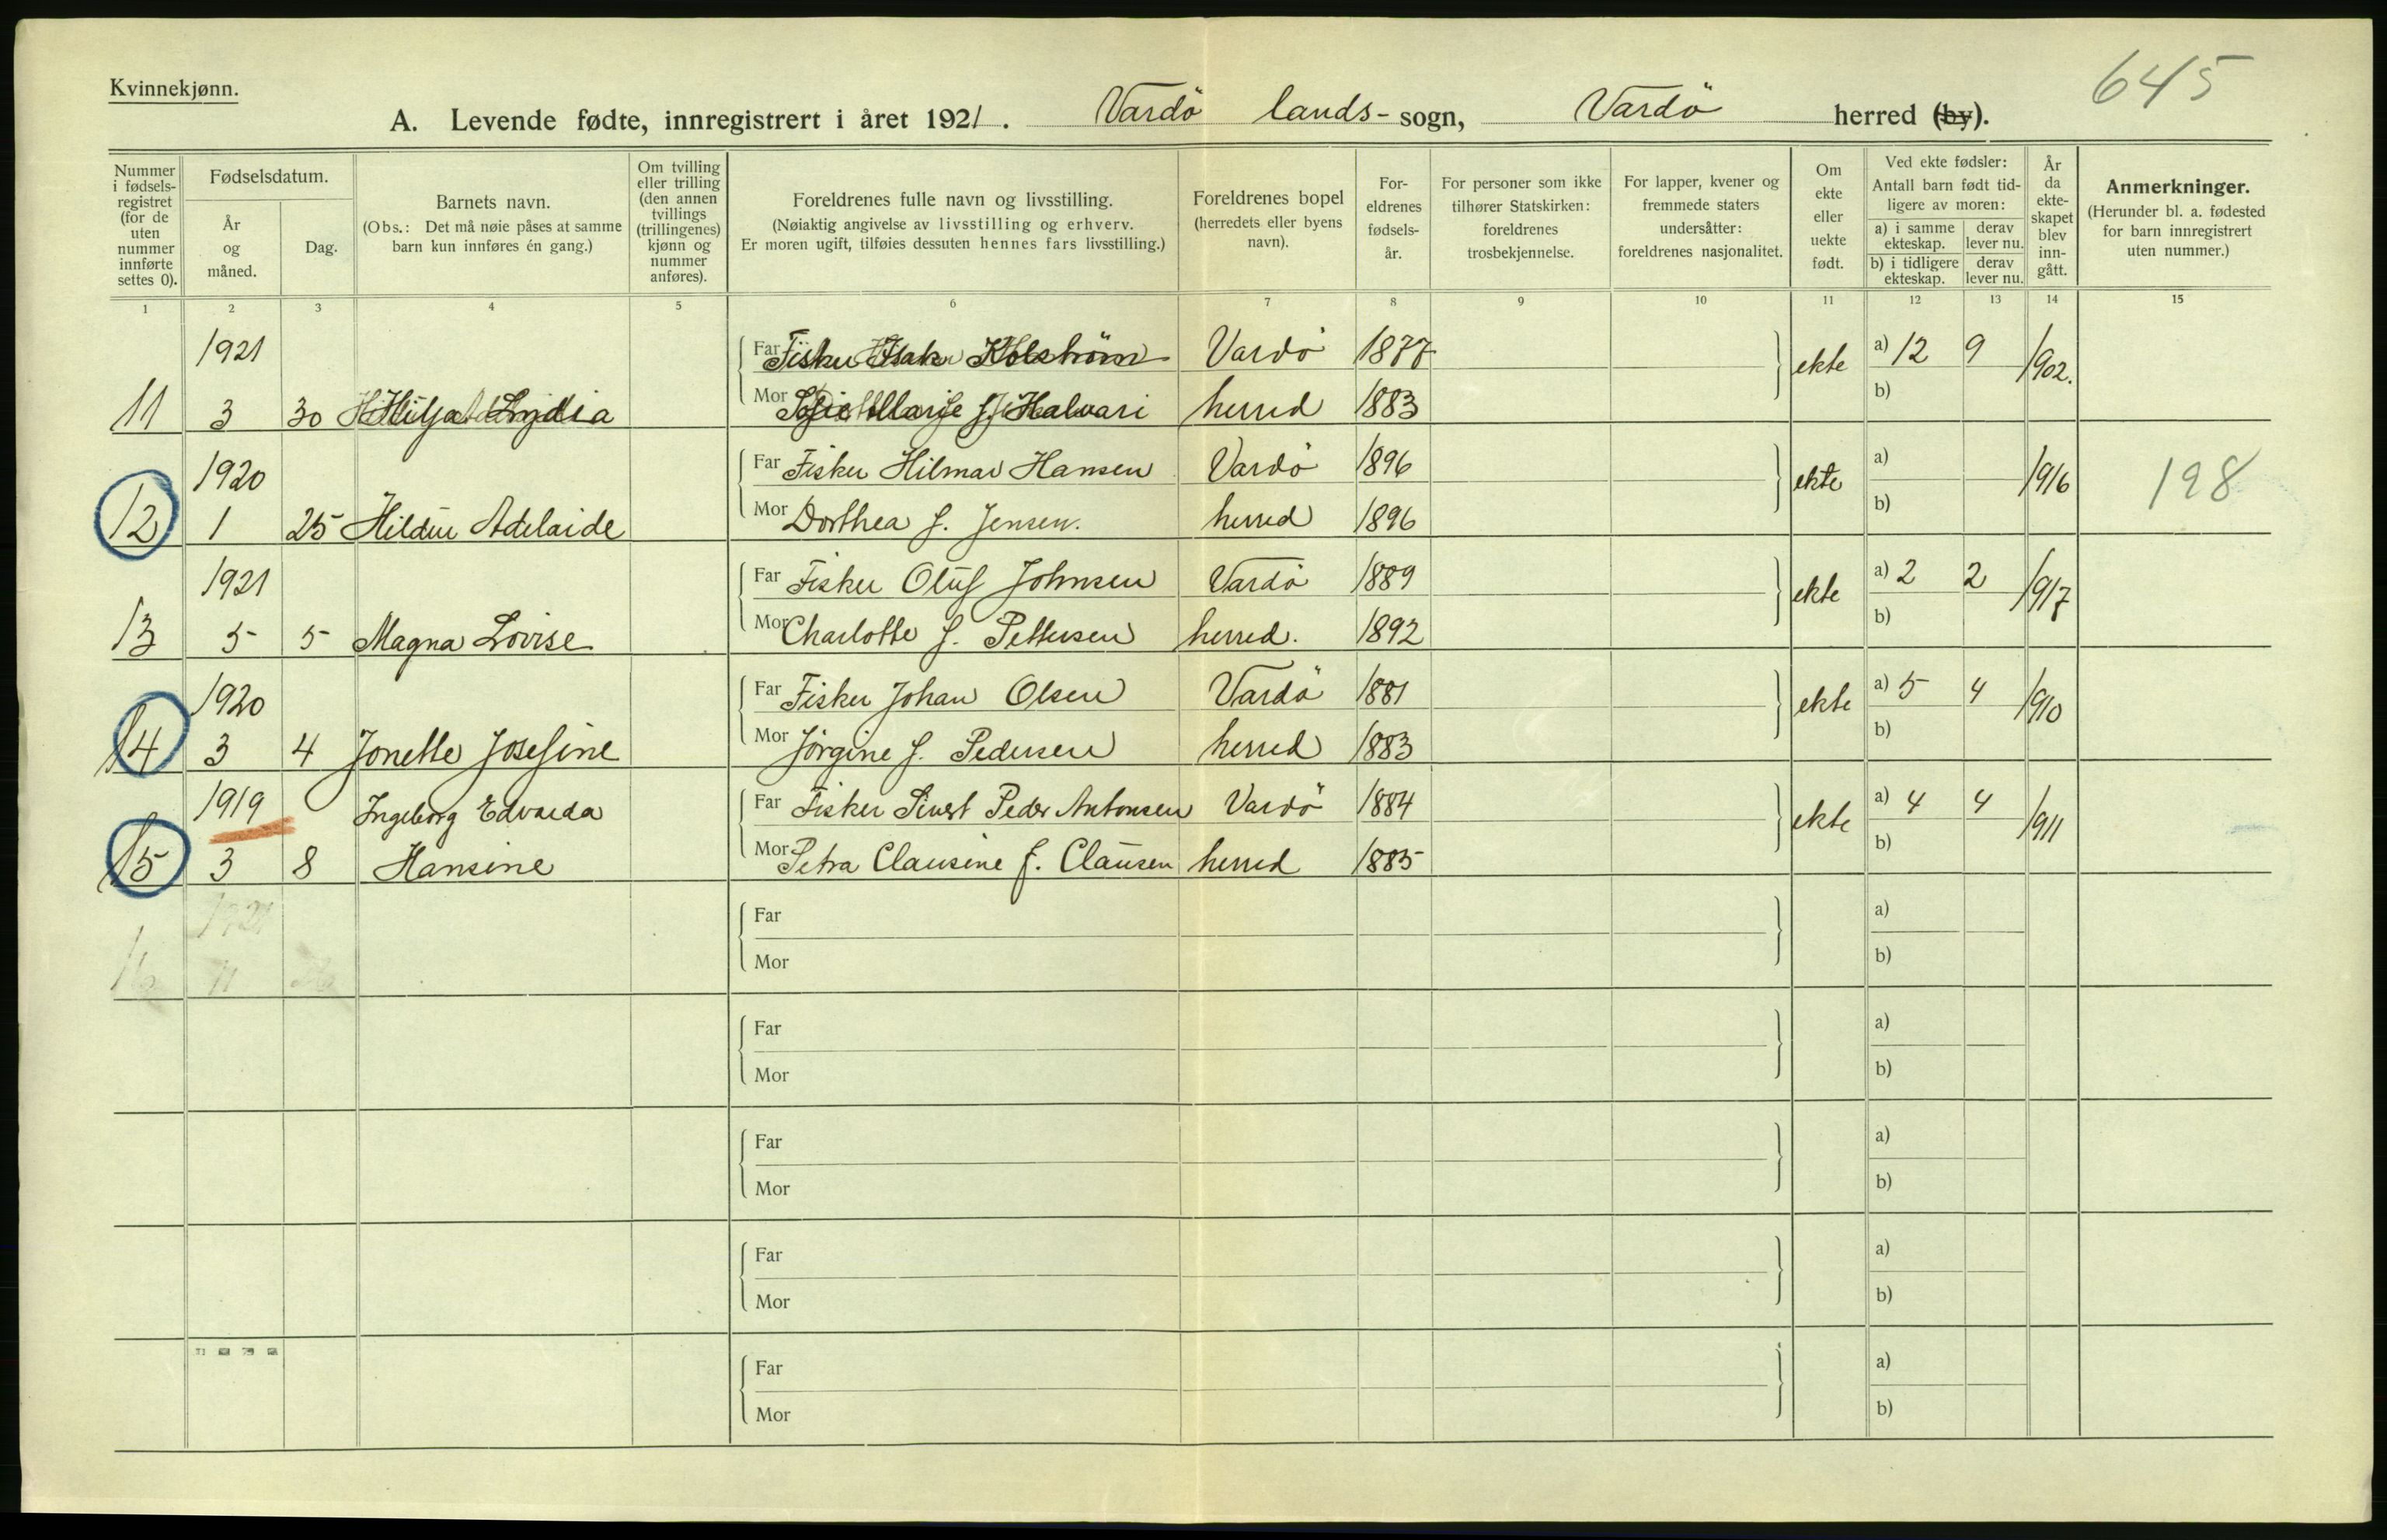 Kvinnekjønn.
645
A. Levende fødte, innregistrert i året 1921. Vardö lands-sogn, Vardö herred (by).
Nummer i fødsels-registret (for de uten nummer innførte settes 0).
Fødselsdatum.
År og måned.
Dag.
Barnets navn.
(Obs.: Det må nøie påses at samme barn kun innføres én gang.)
Om tvilling eller trilling (den annen tvillings (trillingenes) kjønn og nummer anføres).
Foreldrenes fulle navn og livsstilling.
(Nøiaktig angivelse av livsstilling og erhverv.
Er moren ugift, tilføies dessuten hennes fars livsstilling.)
Foreldrenes bopel
(herredets eller byens navn).
For-eldrenes fødsels-år.
For personer som ikke tilhører Statskirken: foreldrenes trosbekjennelse.
For lapper, kvener og fremmede staters undersåtter: foreldrenes nasjonalitet.
Om ekte eller uekte født.
Ved ekte fødsler:
Antall barn født tid-ligere av moren:
a) i samme ekteskap.
derav lever nu.
b) i tidligere ekteskap.
derav lever nu.
År da ekte-skapet blev inn-gått.
Anmerkninger.
(Herunder bl. a. fødested for barn innregistrert uten nummer.)
1 2 3 4 5 6 7 8 9 10 11 12 13 14 15
1921 Far Fisker Isak Vardö 1877 ekte a) 12 9 1902.
11 3 30 Hilja Lydia Mor Marie f. Halvari herred 1883 b)
1920 Far Fisker Hilmar Hansen Vardö 1896 ekte a) 1916 198
12 1 25 Hildur Adelaide Mor Dorthea f. Jensen. herred 1896 b)
1921 Far Fisker Oluf Johnsen Vardö 1889 ekte a) 2 2 1917
13 5 5 Magna Lovise Mor Charlotte f. Pettersen herred. 1892 b)
1920 Far Fisker Johan Olsen Vardö 1881 ekte a) 5 4 1910
14 3 4 Jonette Josefine Mor Jörgine f. Pedersen herred 1883 b)
1919 Ingeborg Edvarda Far Fisker Peder Antonsen Vardö 1884 ekte a) 4 4 1911
15 3 8 Hansine Mor Petra Clausine f. Clausen herred 1885 b)
1921 Far a)
16 11 Mor b)
Far a)
Mor b)
Far a)
Mor b)
Far a)
Mor b)
Far a)
Mor b)